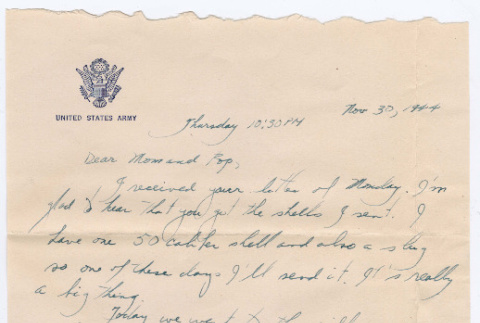 UNITED STATES ARMY
Nov 30, 1944
Thursday 10:30 PM
Dear Mom and Pop,
I received your letter of Monday. I'm
glad to hear that you got the shells I sent. I
have one 50 caliber shell and also a slug
so one of these days I'll send it. It's really
a big thing.
Today we went to the